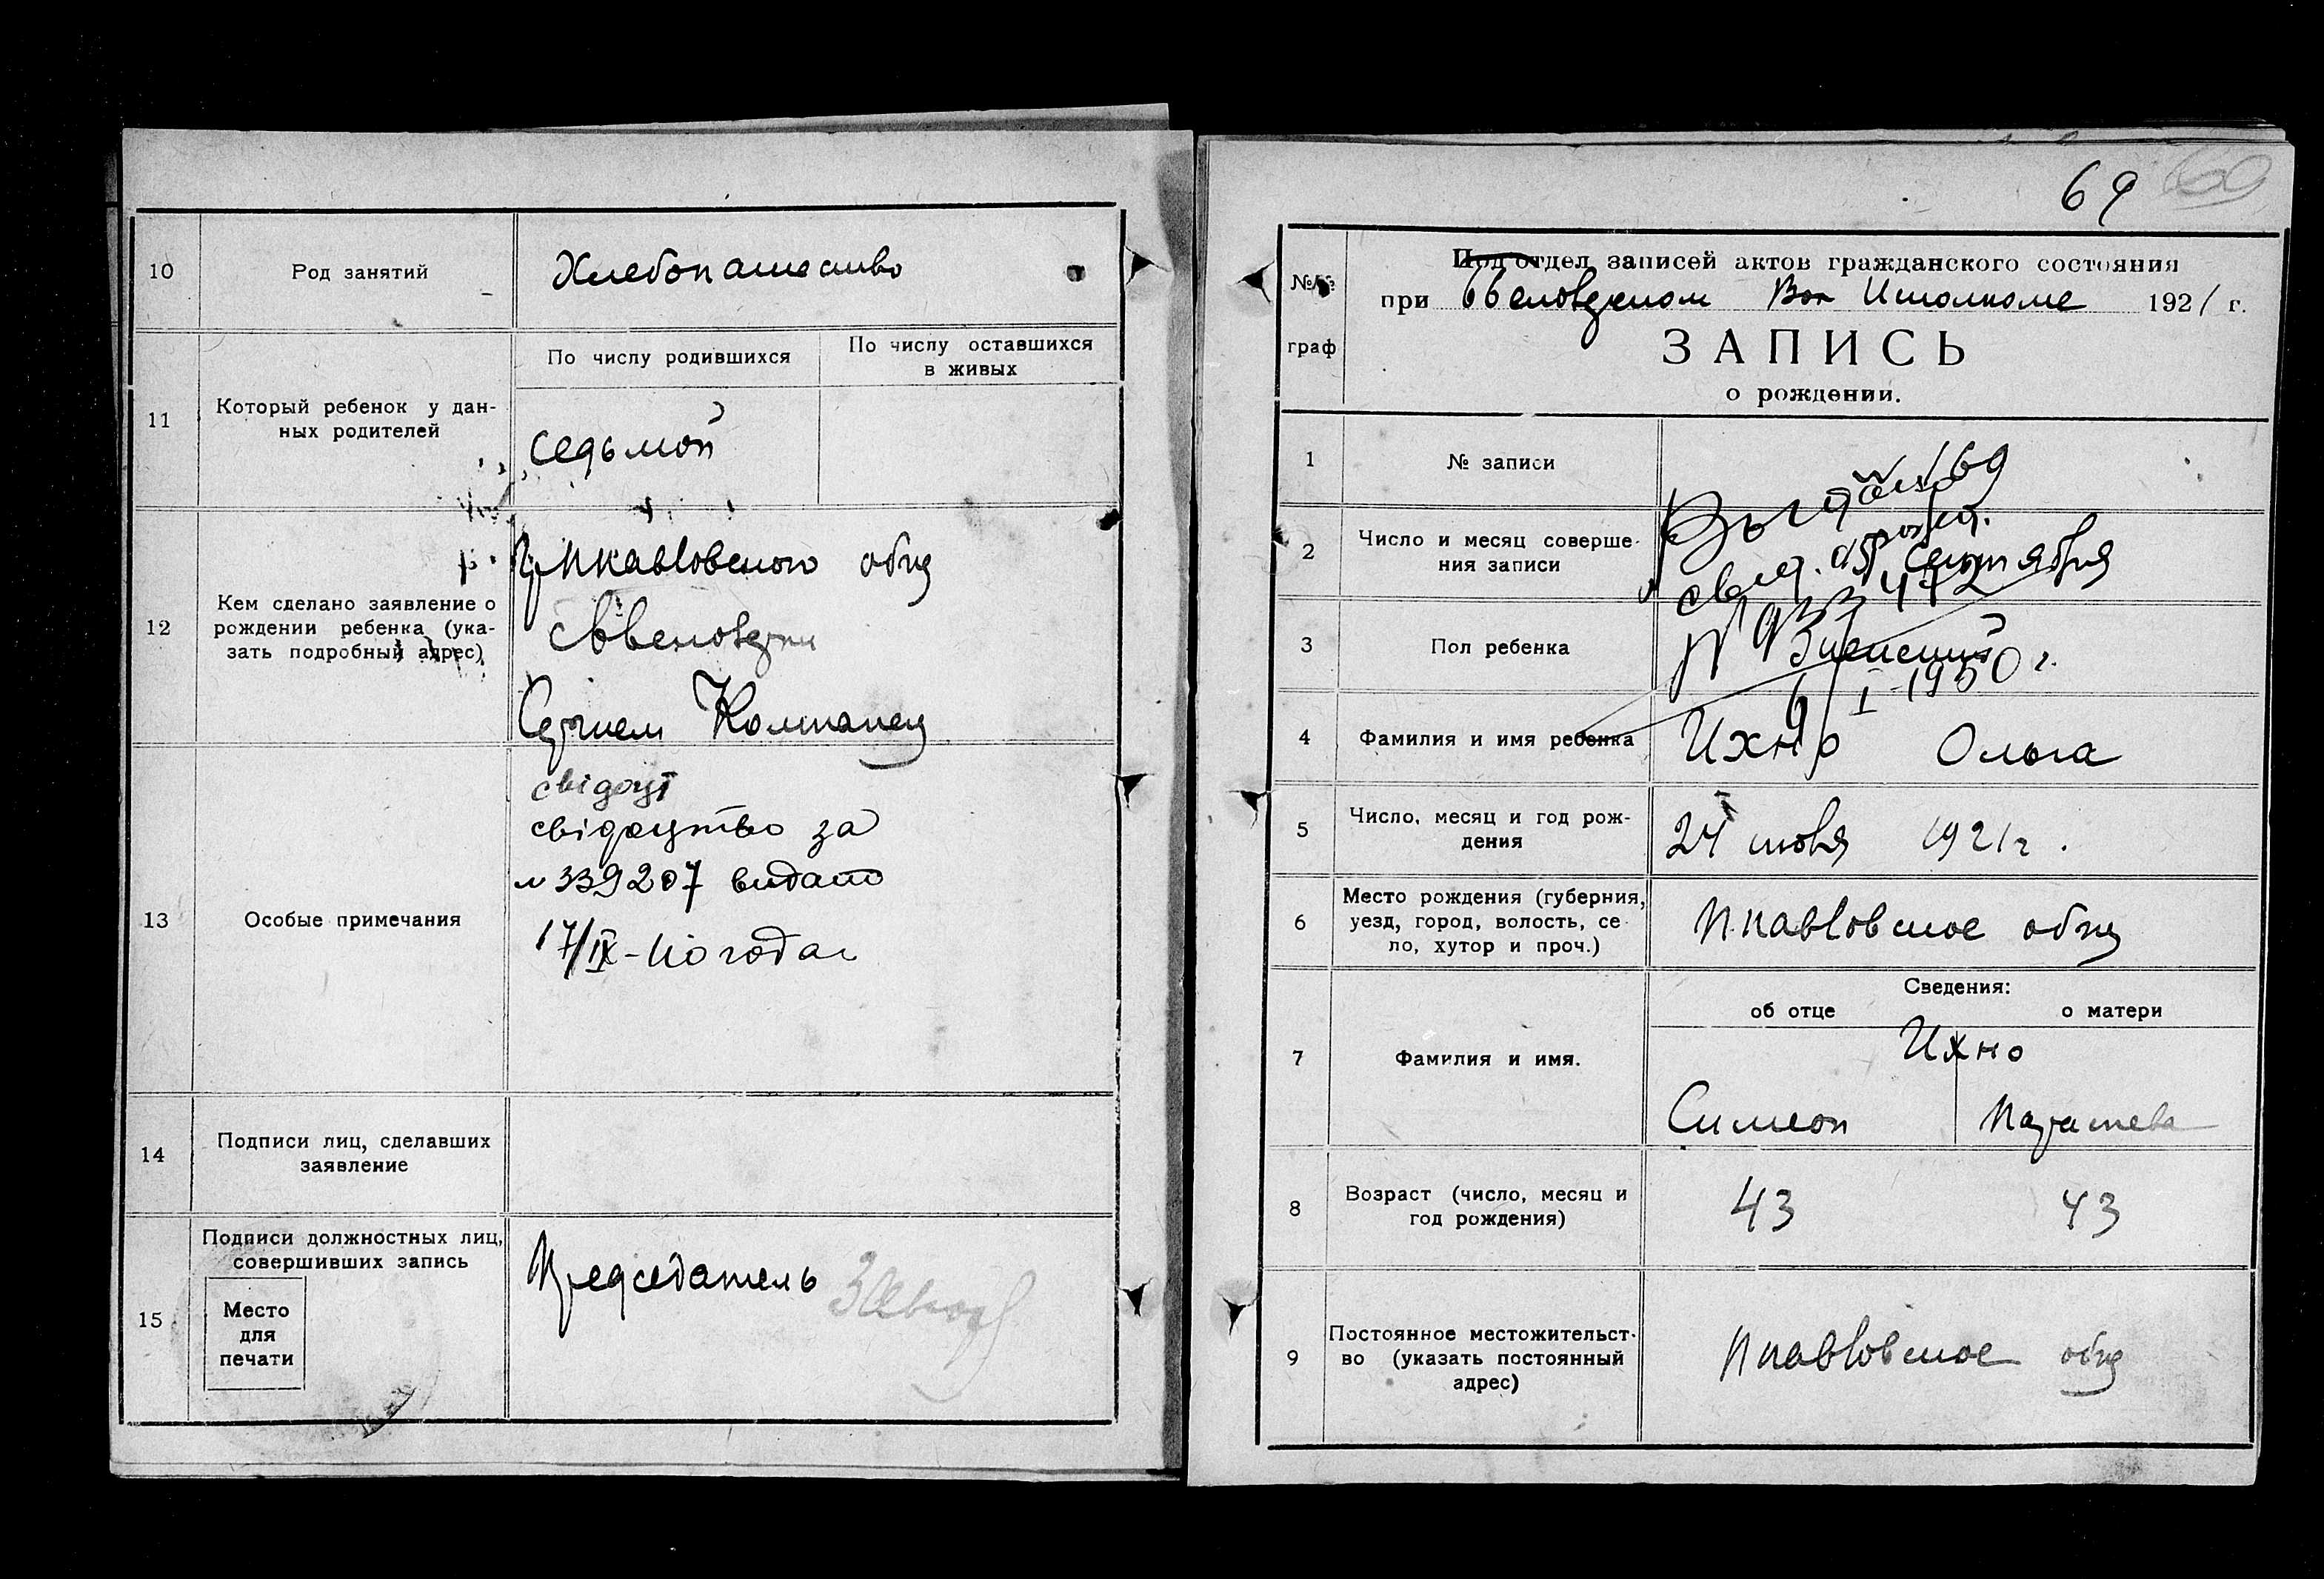 10
Род занятий
Хлебопашество
11
Который ребенок у дан-
ных родителей
По числу родившихся
По числу оставшихся
в живых
седьмой
12
Кем сделано заявление о
рождении ребенка (ука-
зать подробный адрес)
обще
Сергием Компанец
13
Особые примечания
свідоцт
свідоцтво за
№ 339207 видано
17/IX-40 года
14
Подписи лиц, сделавших
заявление
15
Подписи должностных лиц,
совершивших запись
Место
для
печати
Председатель
69
№/№
граф
Под отдел записей актов гражданского состояния
при Вол Исполкоме 1921 г.
ЗАПИСЬ
о рождении.
1
№ записи
169
2
Число и месяц соверше-
ния записи
сентября
3
Пол ребенка
Женский
I-1950 г.
4
Фамилия и имя ребенка
Ихно Ольга
5
Число, месяц и год рож-
дения
24 июля 1921 г.
6
Место рождения (губерния,
уезд, город, волость, се-
ло, хутор и проч.)
П.павловское обще
7
Фамилия и имя.
Сведения:
об отце
о матери
Ихно
Симеон
8
Возраст (число, месяц и
год рождения)
43
43
9
Постоянное местожительст-
во (указать постоянный
адрес)
Ппавловское обще